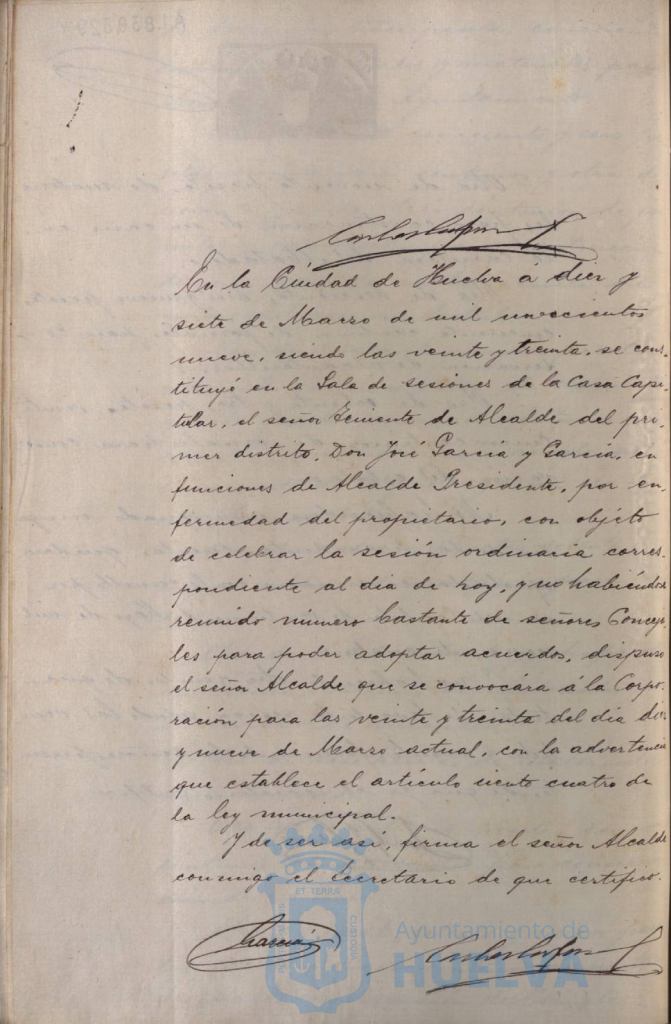 En la Ciudad de Huelva á diez y
siete de Marzo de mil novecientos
nueve, siendo las veinte y treinta, se cons-
tituyó en la Sala de sesiones de la Casa Capi-
tular, el señor Teniente de Alcalde del pri-
mer distrito, Don José García y García, en
funciones de Alcalde Presidente, por en-
fermedad del propietario, con objeto
de celebrar la sesión ordinaria corres-
pondiente al dia de hoy, y no habiéndose
reunido número bastante de señores Conceja-
les para poder adoptar acuerdos, dispuso
el señor Alcalde que se convocára á la Corpo-
ración para las veinte y treinta del dia diez
y nueve de Marzo actual, con la advertencia
que establece el artículo ciento cuatro de
la ley municipal.
Y de ser así, firma el señor Alcalde
conmigo el Secretario de que certifico.
García
Ayuntamiento de
HUELVA
ET TERRA
CUSTODIA